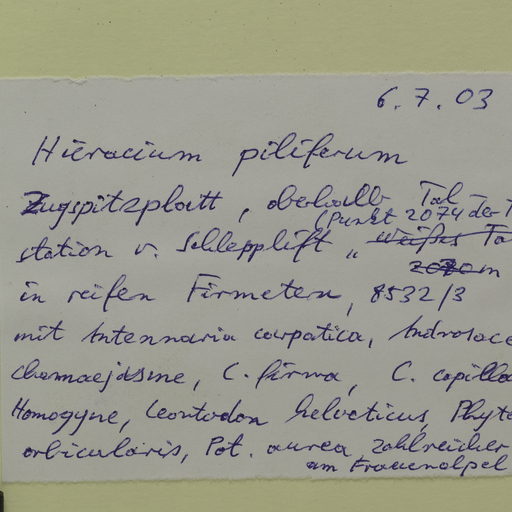 6.7.03
Hieracium piliferum
Zugspitzplatt, oberhalb Tal
(Punkt 2074 der T
station v. Schlepplift „ weißes Ta
in reifen Firmeten, 8532/3
mit Antennaria carpatica, Androsace
chamaejasme, C. firma, C. capilla
Homogyne, Leontodon helveticus, Phyte
orbicularis, Pot. aurea, zahlreicher
am Frauenalpel